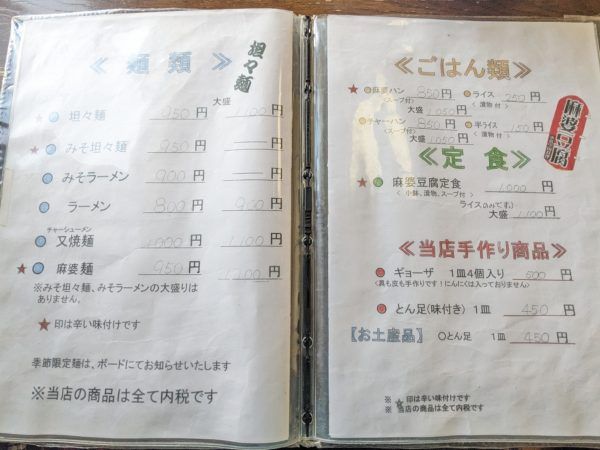 ≪ 麺 類 ≫
坦々麺
大盛
坦々麺 950円 1,100円
★ みそ坦々麺 950円 ―
みそラーメン 900円 ―
ラーメン 800円 円
チャーシューメン
又焼麺 1,000円 1,100円
★ 麻婆麺 950円 円
※みそ坦々麺、みそラーメンの大盛りは
ありません。
★ 印は辛い味付けです
季節限定麺は、ボードにてお知らせいたします
※当店の商品は全て内税です
≪ごはん類≫
★麻婆ハン 850円 ライス 円
(スープ付) < 漬物 付>
大盛 1,050円
チャーハン 850円 半ライス 150円
(スープ付) < 漬物付 >
大盛 1,050円
麻婆豆腐
≪ 定 食 ≫
★ 麻婆豆腐定食 1,000円
< 小鉢、漬物、スープ付 >
ライス(のみです。)
大盛 1,100円
≪当店手作り商品≫
ギョーザ 1皿4個入り 500円
<具も皮も手作りです!にんにくは入っておりません>
とん足(味付き) 1皿 450円
【お土産品】 〇とん足 1皿 450円
※ ★印は辛い味付けです
※ 当店の商品は全て内税です